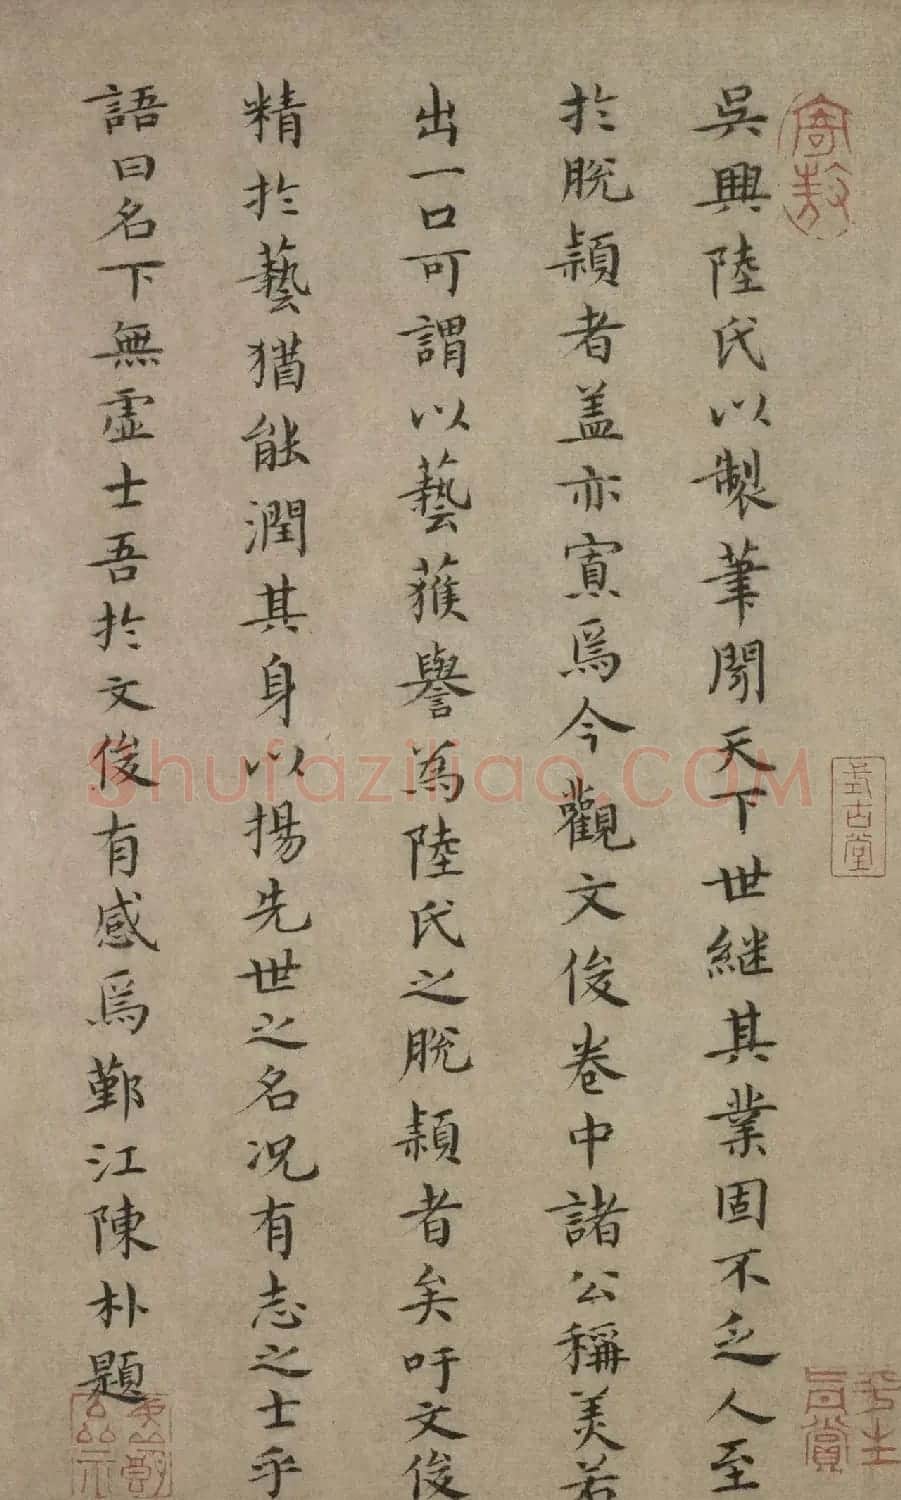 吳興陸氏以製筆聞天下世繼其業固不乏人至
於脫穎者盖亦寡焉今觀文俊卷中諸公稱美若
出一口可謂以藝獲譽為陸氏之脫穎者矣吁文俊
精於藝猶能潤其身以揚先世之名况有志之士乎
語曰名下無虛士吾於文俊有感焉鄞江陳朴題
式古堂
Shufaziliao.COM